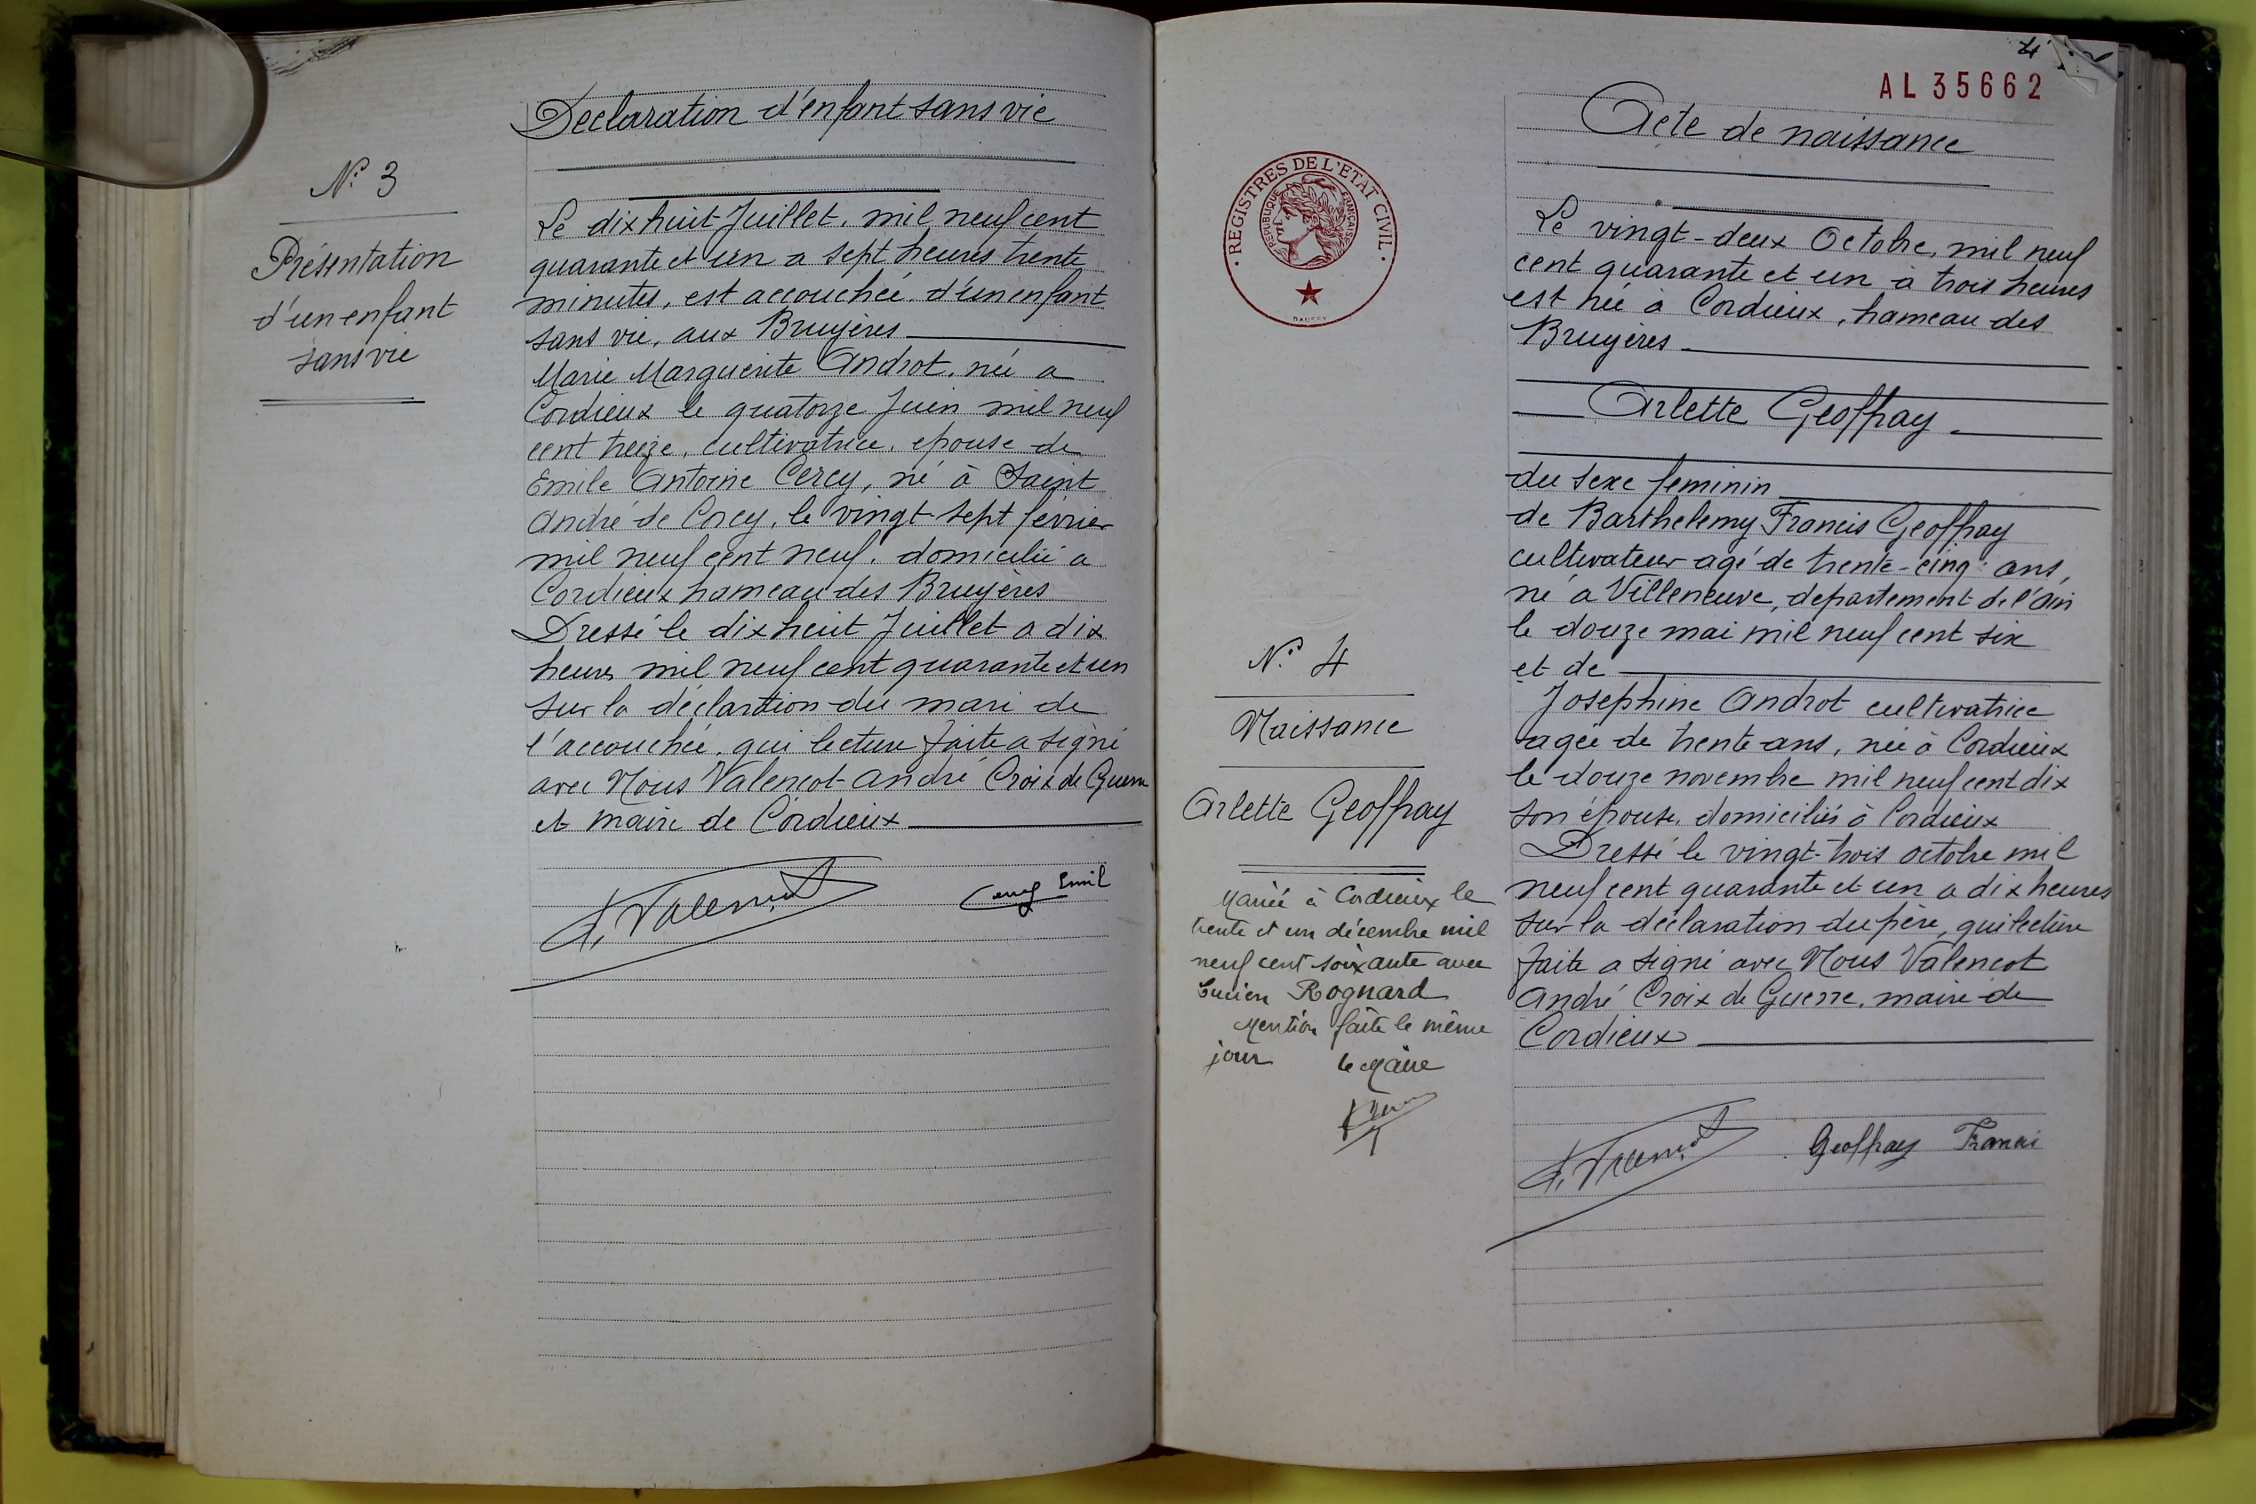 N° 3
Présentation
d'un enfant
sans vie
Declaration d'enfant sans vie
Le dix huit Juillet, mil neuf cent
quarante et un a sept heures trente
minutes, est accouchée d'un enfant
sans vie, aux Bruyères
Marie Marguerite Androt, née a
Cordieux le quatorze Juin mil neuf
cent treize, cultivatrice, epouse de
Emile Antoine Cercy, né à Saint
André de Corcy, le vingt-sept février
mil neuf cent neuf, domicilié a
Cordieux hameau des Bruyères
Dressé le dix huit Juillet a dix
heures mil neuf cent quarante et un
sur la déclartion du mari de
l'accouchée, qui lecture faite a signé
avec Nous Valencot André Croix de Guerre
et maire de Cordieux
A. Valencot
Emil
4
AL 35662
REGISTRES DE L'ETAT CIVIL
REPUBLIQUE FRANÇAISE
N° 4
Naissance
Arlette Geoffray
Mariée à Cordieux le
trente et un décembre mil
neuf cent soixante avec
Lucien Rognard
Mention faite le même
jour le Maire
Acte de naissance
Le vingt-deux Octobre, mil neuf
cent quarante et un à trois heures
est née à Cordieux, hameau des
Bruyères
Arlette Geoffray
du sexe feminin
de Barthelemy Francis Geoffray
cultivateur agé de trente-cinq ans,
né a Villeneuve, departement de l'Ain
le douze mai mil neuf cent six
et de
Josephine Androt cultivatrice
agée de trente ans, née à Cordieux
le douze novembre mil neuf cent dix
son épouse, domiciliés à Cordieux
Dressé le vingt-trois octobre mil
neuf cent quarante et un a dix heures
sur la déclaration du père, qui lecture
faite a signé avec Nous Valencot
André Croix de Guerre, maire de
Cordieux
A. Valencot
Geoffray Franci